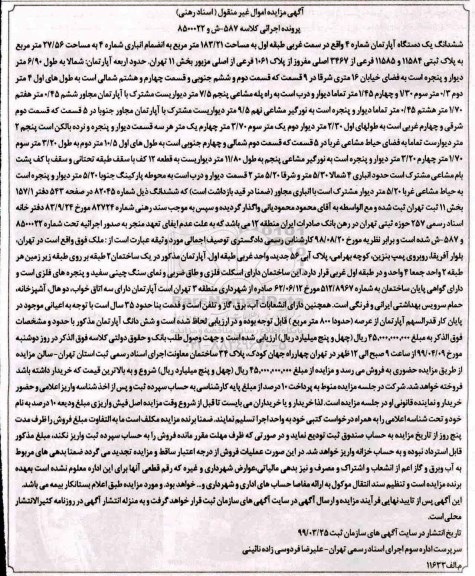 آگهی مزایده اموال غیر منقول (اسناد رهنی)
پرونده اجرائی کلاسه ۵۸۷-ش و ۸۵۰۰۰۲۲
ششدانگ یک دستگاه آپارتمان شماره ۴ واقع در سمت غربی طبقه اول به مساحت ۱۸۳/۲۱ متر مربع به انضمام انباری شماره ۴ به مساحت ۲۷/۵۶ متر مربع
به پلاک ثبتی ۱۱۵۸۴ و ۱۱۵۸۵ فرعی از ۳۴۶۷ اصلی مفروز از پلاک ۱۰۶۱ فرعی از اصلی مزبور بخش ۱۱ تهران. حدود اربعه آپارتمان: شمالا به طول ۶/۹۰ متر
دیوار و پنجره است به فضای خیابان ۱۶ متری شرقا در ۹ قسمت که قسمت دوم و ششم جنوبی و قسمت چهارم و هشتم شمالی است به طول های اول ۴ متر
دوم ۰/۳ متر سوم ۱/۳۰ و چهارم ۱/۴۵ متر تماما دیوار و درب است به راه پله مشاعی پنجم ۷/۵ متر دیواریست مشترک با آپارتمان مجاور ششم ۰/۴۵ متر هفتم
۱/۷۰ متر هشتم ۰/۴۵ متر تماما دیوار و پنجره است به نورگیر مشاعی نهم ۹/۵ متر دیواریست مشترک با آپارتمان مجاور جنوبا در ۵ قسمت که قسمت دوم
شرقی و چهارم غربی است به طولهای اول ۲/۳۰ متر دیوار دوم یک متر سوم ۳/۷۰ متر چهارم یک متر هر سه قسمت دیوار و پنجره و نرده بالکن است پنجم ۲
متر دیوارست تماما به فضای حیاط مشاعی غربا در ۵ قسمت که قسمت دوم شمالی و چهارم جنوبی است به طول های اول ۱۰/۵ متر دوم به طول ۳/۲۰ متر سوم
۱/۷۰ متر چهارم ۳/۲۰ متر دیوار و پنجره است به نورگیر مشاعی پنجم به طول ۱۱/۸۰ متر دیواریست به قطعه ۱۲ کف با سقف طبقه تحتانی و سقف با کف پشت
بام مشاعی مشترک است حدود انباری ۴ شمالا ۵/۳۰ متر و شرقا ۵/۲۰ متر ۲ قسمت دیوار و درب است به محوطه پارکینگ جنوبا ۵/۳۰ متر دیواریست
به حیاط مشاعی غربا ۵/۲۰ متر دیوار مشترک است با انباری مجاور (ضمنا در قید بازداشت است) که ششدانگ ذیل شماره ۸۲۰۴۵ در صفحه ۵۴۳ دفتر ۱۵۷/۱
بخش ۱۱ ثبت تهران ثبت شده و مع الواسطه به آقای محمود محمودیانی واگذار گردیده و سپس به موجب سند رهنی شماره ۸۲۷۲۴ مورخ ۸۳/۹/۲۴ دفتر خانه
اسناد رسمی ۲۵۷ حوزه ثبتی تهران در رهن بانک صادرات ایران منطقه ۱۷ می باشد که به علت عدم ایفای تعهد منجر به صدور اجرائیه تحت شماره ۸۵۰۰۰۲۲
و ۵۸۷-ش شده است و برابر نظریه مورخ ۹۸/۰۸/۲۰ کارشناس رسمی دادگستری توصیف اجمالی مورد وثیقه عبارت است از: ملک فوق واقع است در تهران،
بلوار آفریقا، روبروی پمپ بنزین، کوچه بهرامی، پلاک آبی ۵۶ جدید، واحد غربی طبقه اول، آپارتمان مذکور در یک ساختمان ۲ طبقه بر روی طبقه زیر زمین هر
طبقه ۲ واحد جمعا ۴ واحد و در طبقه اول غربی قرار دارد. این ساختمان دارای اسکلت فلزی و طاق ضربی و نمای سنگ چینی سفید و پنجره های فلزی است و
دارای گواهی پایان ساختمان به شماره ۵۱۲/۸۹۶۷ مورخ ۶۲/۰۶/۱۲ صادره از شهرداری منطقه ۳ تهران است آپارتمان دارای سه اتاق خواب، دو هال، آشپزخانه،
حمام سرویس بهداشتی ایرانی و فرنگی است. همچنین دارای انشعابات آب، برق، گاز و تلفن است و قدمت بنا حدود ۳۵ سال است با توجه به اعیانی موجود در
پایان کار قدرالسهم آپارتمان از عرصه (حدودا ۸۰۰ متر مربع) قابل توجه بوده و در ارزیابی لحاظ شده است و شش دانگ آپارتمان مذکور با حدود و مشخصات
فوق الذکر به مبلغ ۴۵,۰۰۰,۰۰۰,۰۰۰ ریال (چهل و پنج میلیارد ریال) ارزیابی شده است و جهت وصول طلب بانک و حقوق دولتی کلاسه فوق الذکر در روز دوشنبه
مورخ ۹۹/۰۴/۰۹ از ساعت ۹ صبح الی ۱۲ ظهر در تهران چهارراه جهان کودک، پلاک ۳۴ ساختمان معاونت اجرای اسناد رسمی ثبت استان تهران - سالن مزایده
از طریق مزایده حضوری به فروش می رسد و مزایده از مبلغ ۴۵,۰۰۰,۰۰۰,۰۰۰ ریال (چهل و پنج میلیارد ریال) شروع و به بالاترین قیمت که خریدار داشته باشد
فروخته خواهد شد. شرکت در جلسه مزایده منوط به پرداخت ۱۰ درصد از مبلغ پایه کارشناسی به حساب سپرده ثبت و پس از اخذ شناسه واریز اعلامی و حضور
خریدار و نماینده قانونی او در جلسه مزایده است. لذا خریدار و یا خریداران می بایست تا قبل از شروع وقت مزایده اصل فیش واریزی مبلغ ودیعه ۱۰ درصد به نام
خود و تحت شناسه اعلامی را به همراه درخواست کتبی خود به واحد اجرا تسلیم نمایند. ضمنا برنده مزایده مکلف است ما به التفاوت مبلغ فروش را ظرف مدت
پنج روز از تاریخ مزایده به حساب صندوق ثبت تودیع نماید و در صورتی که ظرف مهلت مقرر مانده فروش را به حساب سپرده ثبت واریز نکند، مبلغ مذکور
قابل استرداد نبوده و به حساب خزانه واریز خواهد شد. در این صورت عملیات فروش از درجه اعتبار ساقط و مزایده تجدید می گردد ضمنا بدهی های مربوط
به آب و برق و گاز اعم از انشعاب و اشتراک و مصرف و نیز بدهی مالیاتی، عوارض شهرداری و غیره که رقم قطعی آنها برای این اداره معلوم نشده است بعهده
برنده مزایده است و تنظیم سند انتقال موکول به ارائه مفاصا حساب های اداری و شهرداری و... خواهد بود. و مورد مزایده طبق اعلام بستانکار بیمه می باشد.
این آگهی پس از تایید نهایی فرآیند مزایده و ارسال آگهی در سایت آگهی های سازمان ثبت قرار خواهد گرفت و به منزله انتشار آگهی در روزنامه کثیرالانتشار
محلی است.
تاریخ انتشار در سایت آگهی های سازمان ثبت ۹۹/۰۳/۲۵
سرپرست اداره سوم اجرای اسناد رسمی تهران - علیرضا فردوسی زاده نائینی
م.الف ۱۱۶۲۳